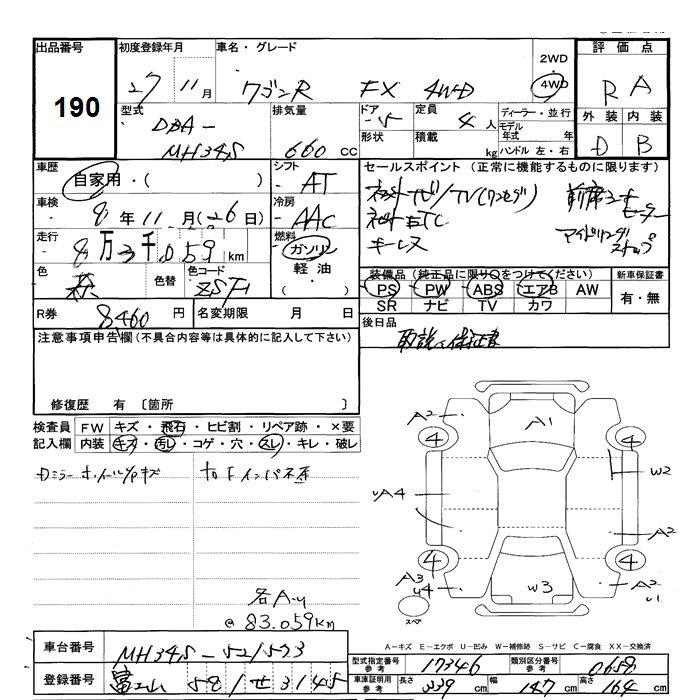 出品番号
190
初度登録年月
27 11月
車名・グレード
ワゴンR FX 4WD
2WD
4WD
評価点
R A
外装 内装
D B
型式
DBA-
MH34S
排気量
660 cc
ドア
5
形状
定員
4 人
積載
kg
ディーラー・並行
モデル年式 年
ハンドル 左・右
車歴
自家用・( )
シフト
AT
車検
8年11月(26日)
冷房
AAC
走行
8万3千059km
燃料
ガソリン
軽油・
( )
色
茶
色替
色コード
ZSF
R券
8460円
名変期限 月 日
セールスポイント(正常に機能するものに限ります)
TV(ワンセグ)
キーレス
前席シートヒーター
アイドリングストップ
装備品(純正品に限り○をつけてください)
新車保証書
PS PW ABS エアB AW
SR ナビ TV カワ
有・無
後日品
取説、保証書
注意事項申告欄(不具合内容等は具体的に記入して下さい)
修復歴 有 〔箇所 〕
検査員記入欄
FW キズ・飛石・ヒビ割・リペア跡・×要
内装 キズ・汚レ・コゲ・穴・スレ・キレ・破レ
Dミラー ホイールcapキズ
右Fインパネ歪
各A・U
@83.059km
A2
A1
4
4
W2
UA4
A2
4
4
A3
U4
W3
A2
U1
スペア
A-キズ E-エクボ U-凹み W-補修跡 S-サビ C-腐食 XX-交換済
車台番号
MH34S-521593
登録番号
富士山 581 せ 3145
型式指定番号 参考
17346
類別区分番号 参考
0659
車庫証明用 参考
長さ 339 cm
幅 147 cm
高さ 164 cm